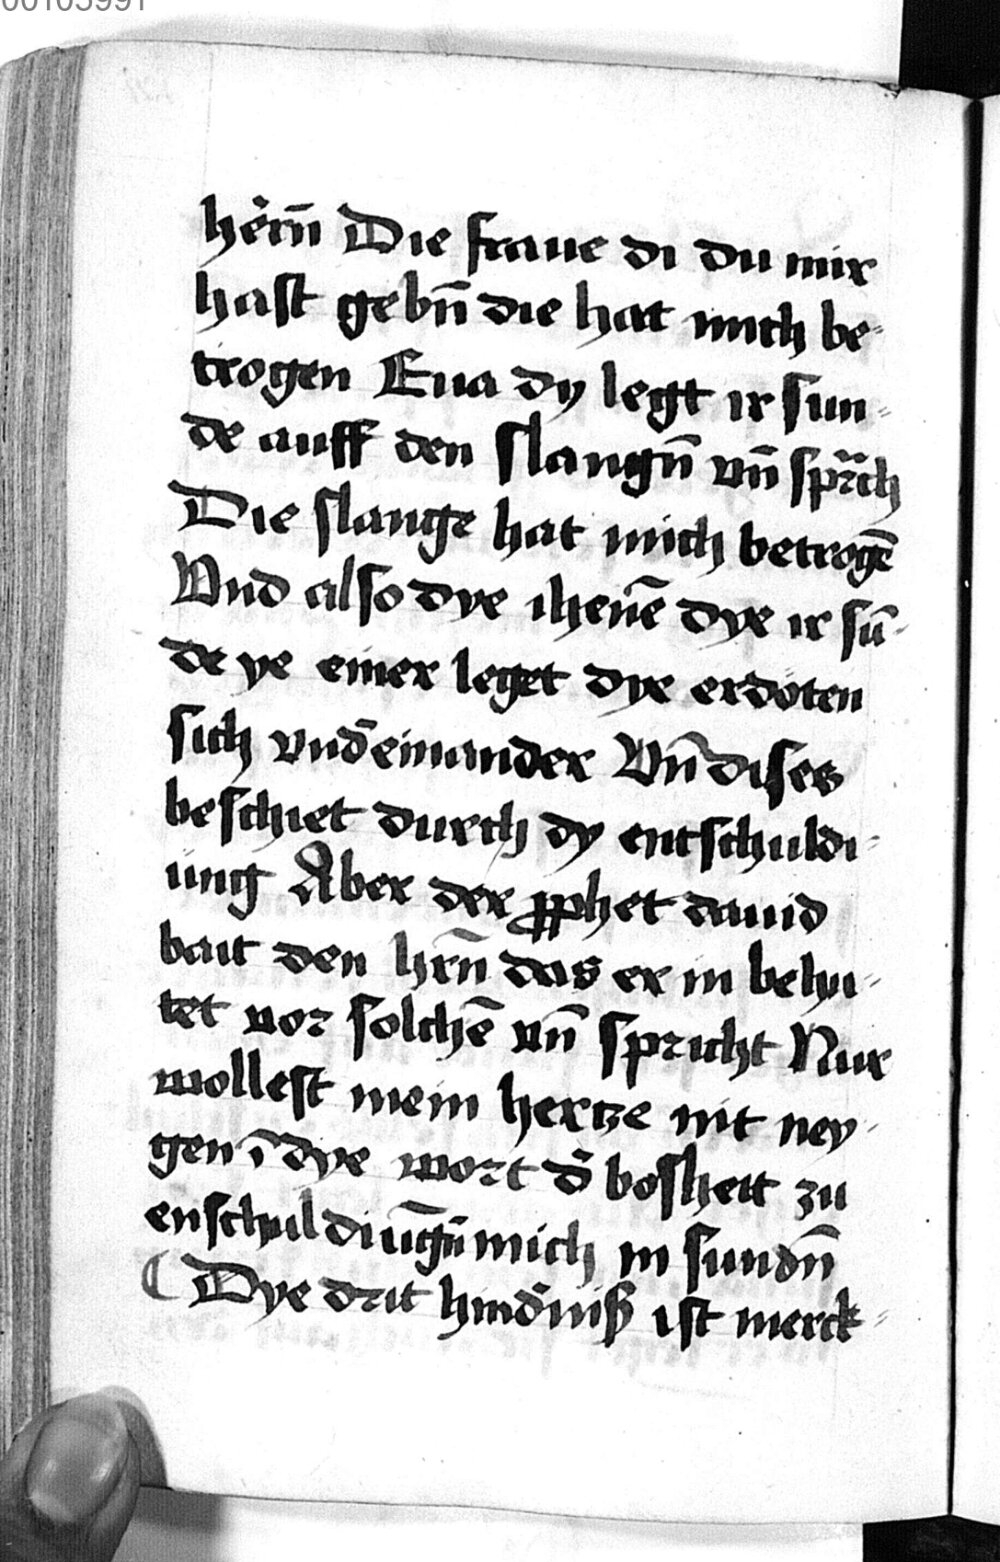 00103991
herñ Die fraue di du mir
hast gebn̄ die hat mich be-
trogen Eua dy legt ir sun-
de auff den slangn̄ vn̄ sprach
Die slange hat mich betrogē
Vnd also dye ihenē dye ir sū-
de ye einer leget dye erdöten
sich vnd̄einander Vn̄ dises
beschiet durch dy entschuldi-
ung Aber der ꝓphet dauid
bait den hrn̄ das er in behu-
tet vor solchē vn̄ spricht Nur
wollest mein hertze nit ney-
gen ī dye wort d̄ bosheit zu
enschuldiūgn̄ mich in sundn̄
¶ Dye drit hind̄niß ist merck-